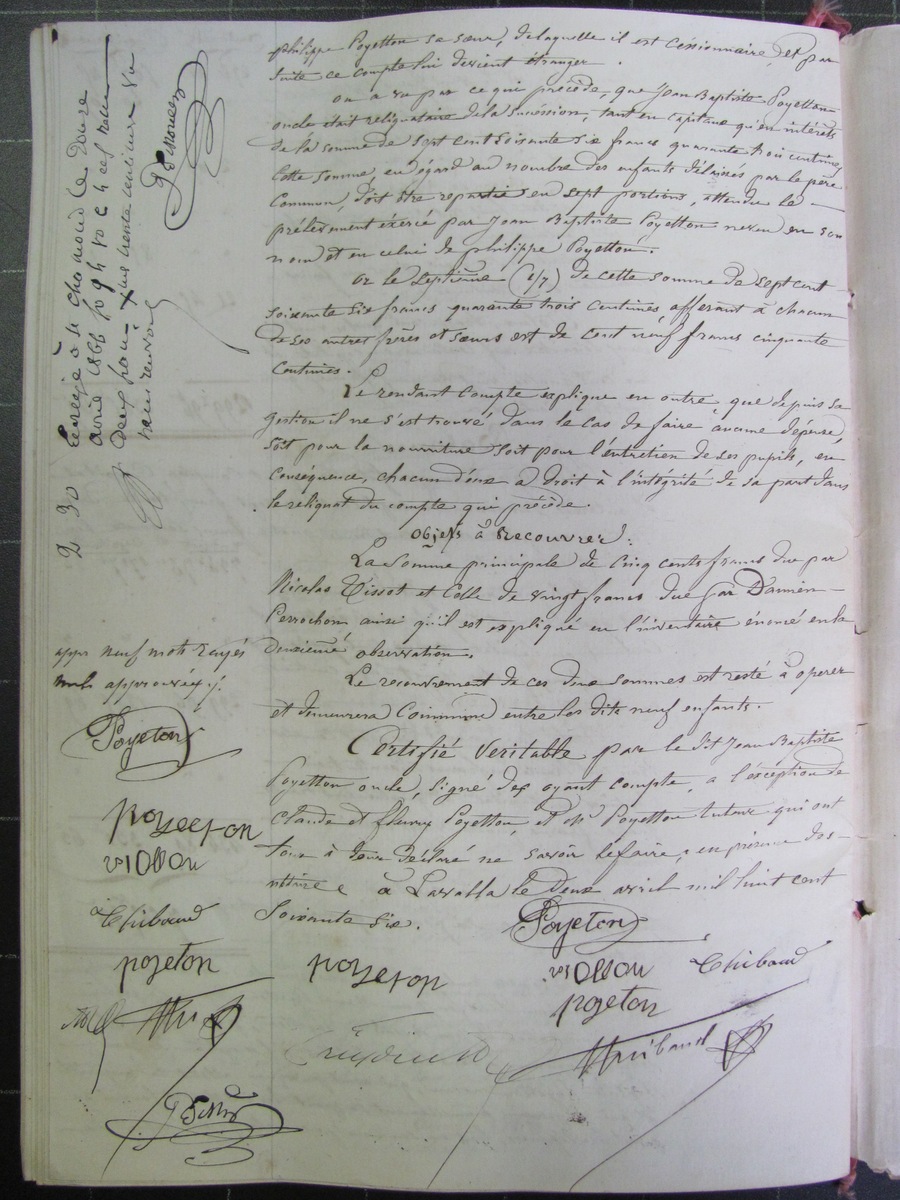 philippe Poyetton sa sœur, de laquelle il est cessionnaire, et par
suite ce compte lui devient étranger.
on a vu par ce qui précède, que Jean Baptiste Poyetton
oncle était reliquataire de la succession, tant en capitaux qu'en intérêts
de la somme de sept cent soixante six francs quarante trois centimes
Cette somme, en égard au nombre des enfants délaissés par le père
Commun, doit être repartie en sept portions, attendu le
prélèvement exercé par Jean Baptiste Poyetton neveu en son
nom et en celui de philippe Poyetton.
or le septième (1/7) de cette somme de sept cent
soixante six francs quarante trois centimes, afférant à chacun
de ses autres frères et sœurs est de cent neuf francs cinquante
centimes.
Le rendant compte explique en outre, que depuis sa
gestion il ne s'est trouvé dans le cas de faire aucune dépense,
soit pour la nourriture soit pour l'entretien de ses pupils, en
conséquence, chacun d'eux a droit à l'intégrité de sa part dans
le reliquat du compte qui précède.
objets à Recouvrer:
La somme principale de Cinq cents francs due par
Nicolas Tissot et Celle de vingt francs due par Damien
Perrochon ainsi qu'il est expliqué en l'inventaire énoncé en la
deuxième observation.
Le recouvrement de ces deux sommes est resté à opérer
et demeurera Commun entre les dits neuf enfants.
Certifié véritable par le dit Jean Baptiste
Poyetton oncle, signé des oyant compte, à l'éxception de
Claude et fleurie Poyetton, et Poyetton tuteur qui ont
tour à tour déclaré ne savoir le faire, en présence des
à Lavalla le deux avril mil huit cent
Soixante six.
Poyeton
poyeton viollon Thibaud
poyeton
Thibaud
Enregé à St chamond le Douze
avril 1866 fo 94
Deux francs trente centimes
2 30
appr neuf mots rayés
nuls approuvés
Poyeton
poyeton
viollon
Thibaud
poyeton